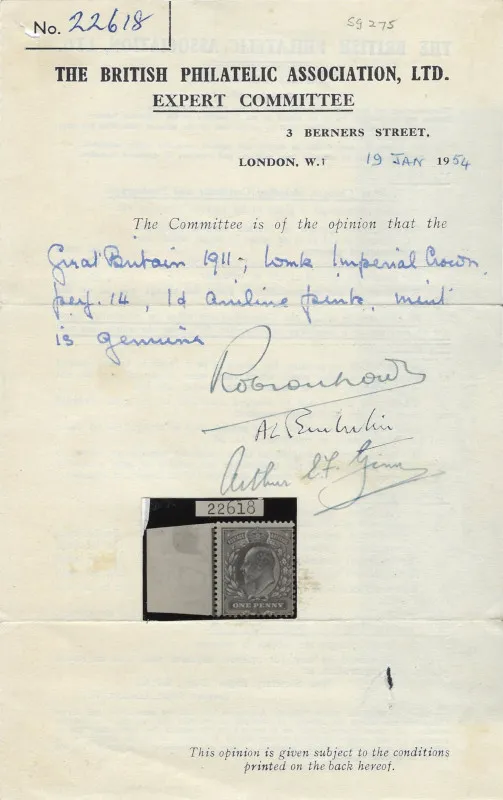 No. 22618
SG 275
THE BRITISH PHILATELIC ASSOCIATION, LTD.
EXPERT COMMITTEE
3 BERNERS STREET,
LONDON, W.1
19 JAN 1954
The Committee is of the opinion that the
Great Britain 1911-, wmk Imperial Crown,
perf. 14, 1d aniline pink, mint
is genuine
Arthur
22618
ONE PENNY
This opinion is given subject to the conditions
printed on the back hereof.